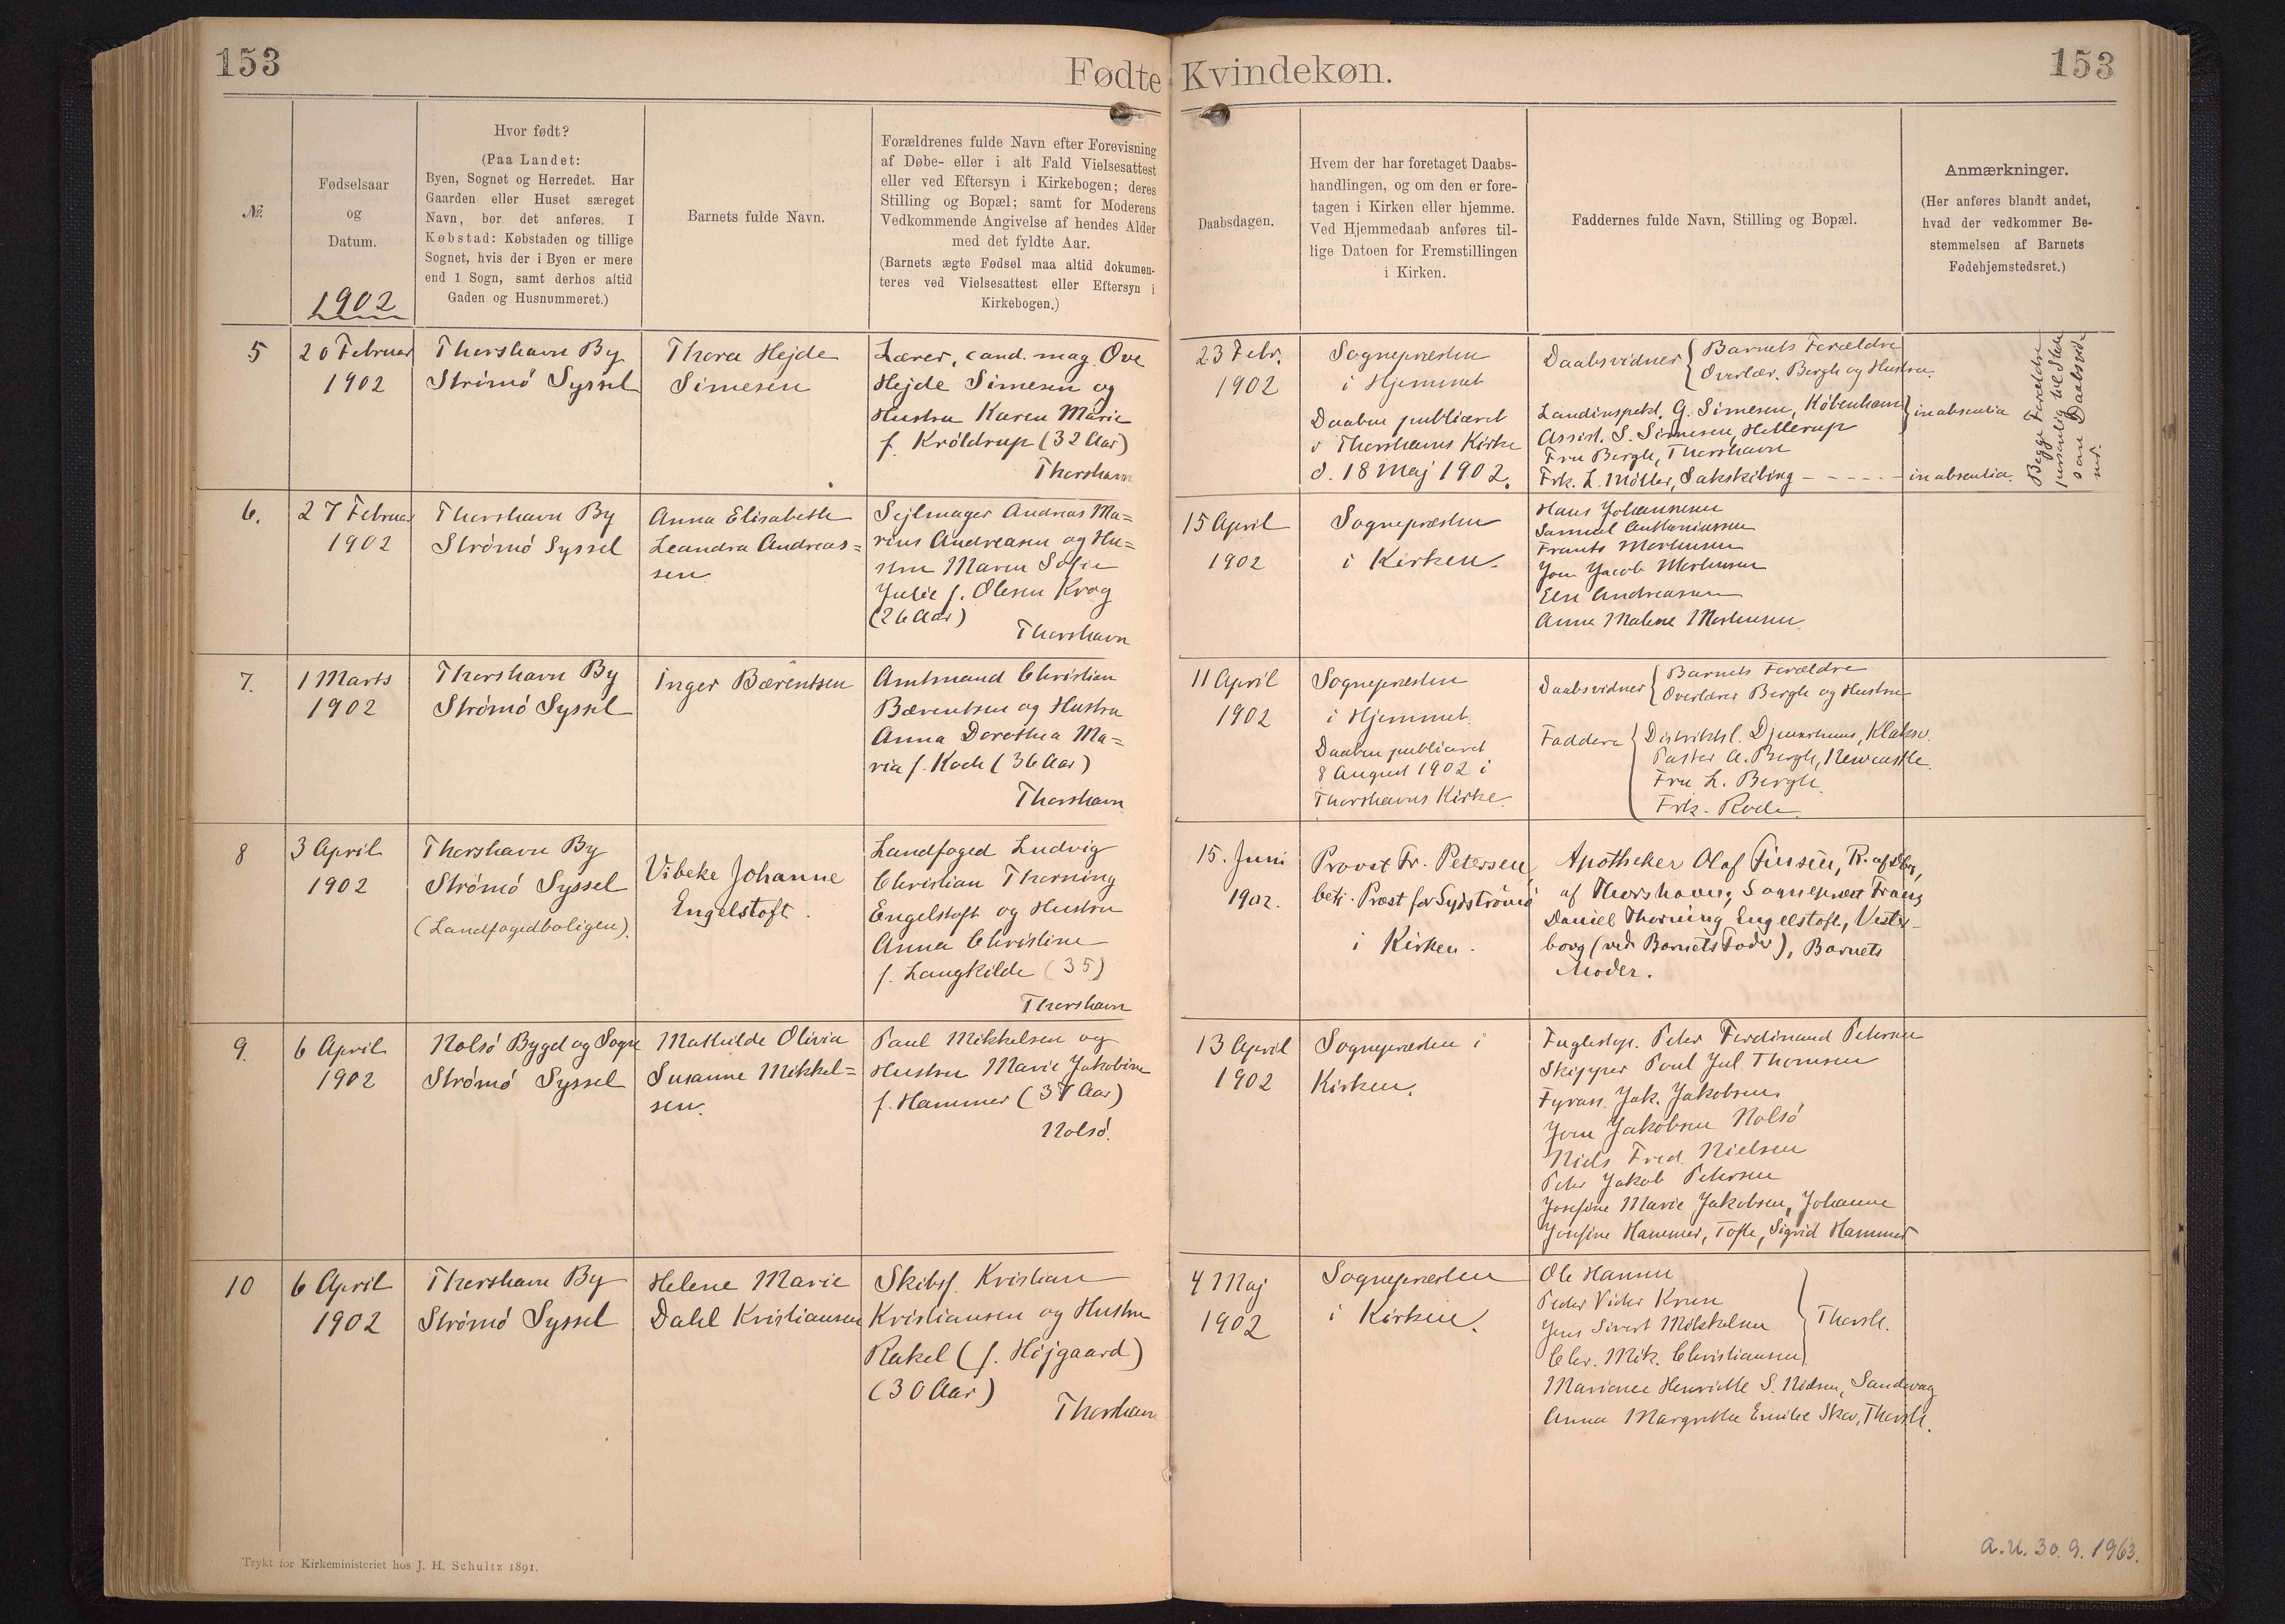 153
Fødte Kvindekøn.
153
№
Fødselsaar
og
Datum.
1902
Hvor født?
(Paa Landet:
Byen, Sognet og Herredet. Har
Gaarden eller Huset særeget
Navn, bør det anføres. I
Købstad: Købstaden og tillige
Sognet, hvis der i Byen er mere
end 1 Sogn, samt derhos altid
Gaden og Husnummeret.)
Barnets fulde Navn.
Forældrenes fulde Navn efter Forevisning
af Døbe- eller i alt Fald Vielsesattest
eller ved Eftersyn i Kirkebogen; deres
Stilling og Bopæl; samt for Moderens
Vedkommende Angivelse af hendes Alder
med det fyldte Aar.
(Barnets ægte Fødsel maa altid dokumen-
teres ved Vielsesattest eller Eftersyn i
Kirkebogen.)
Daabsdagen.
Hvem der har foretaget Daabs-
handlingen, og om den er fore-
tagen i Kirken eller hjemme.
Ved Hjemmedaab anføres til-
lige Datoen for Fremstillingen
i Kirken.
Faddernes fulde Navn, Stilling og Bopæl.
Anmærkninger.
(Her anføres blandt andet,
hvad der vedkommer Be-
stemmelsen af Barnets
Fødehjemstedsret.)
5
20 Februar
1902
Thorshavn By
Strömö Syssel
Thora Hejde
Simesen
Lærer, cand. mag. Ove
Hejde Simesen og
Hustru Karen Marie
f. Kröldrup (32 Aar)
Thorshavn
23 Febr.
1902
Sognepræsten
i Hjemmet
Daaben publiceret
i Thorshavns Kirke
d. 18 Maj 1902.
Daabsvidner { Barnets Forældre
Overlær. Bergh og Hustru.
Landinspekt. G. Simesen, København } in absentia
Assist. S. Simesen, Hellerup
Fru Bergh, Thorshavn
Frk. L. Möller, Sakskibing - - - - - in absentia.
Begge Forældre
personlig til Stede
som Daabsvid-
ner.
6.
27 Februar
1902
Thorshavn By
Strömö Syssel
Anna Elisabeth
Leandra Andreas=
sen
Sejlmager Andreas Ma=
rius Andreasen og Hu=
stru Maren Sofie
Julie f. Olesen Krog
(26 Aar)
Thorshavn
15 April
1902
Sognepræsten
i Kirken.
Hans Johannesen
Samuel Anthoniussen
Frants Mortensen
Jon Jacob Mortensen
Else Andreasen
Anna Malene Mortensen
7.
1 Marts
1902
Thorshavn By
Strömö Syssel
Inger Bærentsen
Amtmand Christian
Bærentsen og Hustru
Anna Dorothea Ma=
ria f. Koch (36 Aar)
Thorshavn
11 April
1902
Sognepræsten
i Hjemmet.
Daaben publiceret
8 August 1902 i
Thorshavns Kirke.
Daabsvidner { Barnets Forældre
Overlærer Bergh og Hustru
Faddere { Distriktsl. Djurhuus, Klaksv.
Pastor A. Bergh, Newcastle.
Fru L. Bergh.
Frk. Rode
8
3 April
1902
Thorshavn By
Strömö Syssel
(Landfogedboligen).
Vibeke Johanne
Engelstoft.
Landfoged Ludvig
Christian Thorning
Engelstoft og Hustru
Anna Christine
f. Langkilde (35)
Thorshavn
15. Juni
1902.
Provst Fr. Petersen,
beti. Præst for Sydströmö
i Kirken.
Apotheker Olaf Finsen, R. af Dbr,
af Thorshavn, Sognepræst Frans
Daniel Thorning Engelstoft, Vester-
borg (ved Barnets Fader), Barnets
Moder.
9.
6 April
1902
Nolsö Bygd og Sogn
Strömö Syssel
Mathilde Olivia
Susanne Mikkel=
sen.
Paul Mikkelsen og
Hustru Marie Jakobine
f. Hammer (37 Aar)
Nolsö.
13 April
1902
Sognepræsten i
Kirken.
Peter Ferdinand Petersen
Skipper Poul Jul. Thomsen
Jak. Jakobsen
Jom Jakobsen Nolsö
Niels Fred. Nielsen
Peter Jakob Petersen
Josefine Marie Jakobsen, Johanne
Josefine Hammer, Tofte, Sigrid Hammer
10
6 April
1902
Thorshavn By
Strömö Syssel
Helene Marie
Dahl Kristiansen
Skibsf. Kristian
Kristiansen og Hustru
Rakel (f. Höjgaard)
(30 Aar)
Thorshavn
4 Maj
1902
Sognepræsten
i Kirken.
Ole Hansen
Peder
Jens Sivert Mikkelsen } Thorsh.
Chr. Mik. Christiansen
Marianne Henriette S. Nielsen, Sandvaag
Anna Margrethe Emilie Skov, Thorsh.
Trykt for Kirkeministeriet hos J. H. Schultz 1891.
A.U. 30.9.1963.